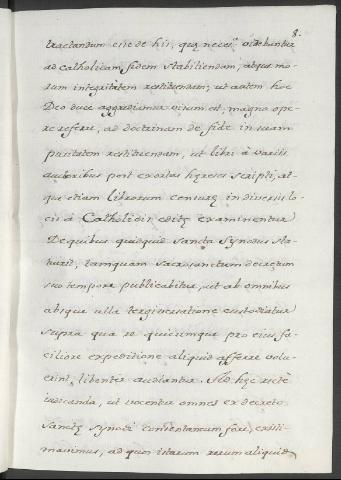 8.
tractandum esse de his, quę necess. videbuntur
ad Catholicam fidem stabiliendam, atque mo-
rum integritatem restituendam, ut autem hoc
Deo duce aggrediamur visum est, magno ope-
re referre, ad doctrinam de fide in suam
puritatem restituendam, ut libri à variis
auctoribus post exortas hęreses scripti, at-
que etiam librorum censurę in diversis lo-
cis à Catholicis editę examinentur
De quibus quidquid Sancta Synodus sta-
tuerit, tamquam sacrosanctum decretum
suo tempore publicabitur, ut ab omnibus
absque ulla tergiversatione custodiatur
supra qua re quicumque pro eius fa-
ciliore expeditione aliquid afferre volu-
erint, libenter audiantur. Ad hęc rectè
iudicanda, ut vocentur omnes ex decreto
Sanctę Synodi consentaneum fore, existi-
mavimus, ad quos istarum rerum aliquid